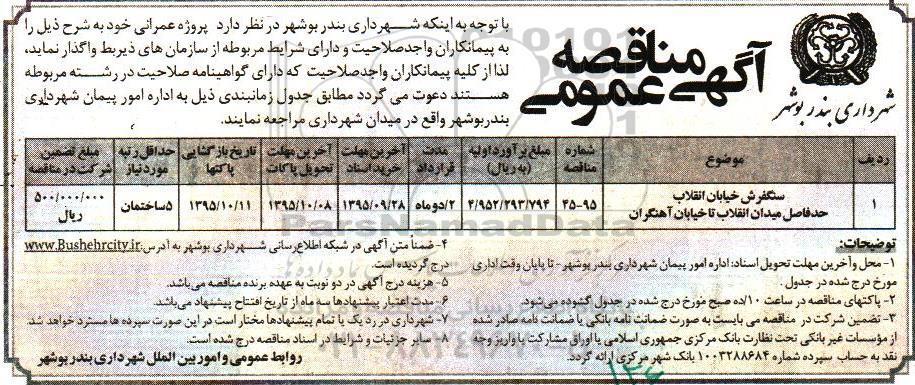 آگهی مناقصه
عمومی
شهرداری بندر بوشهر
با توجه به اینکه شهرداری بندر بوشهر در نظر دارد پروژه عمرانی خود به شرح ذیل را
به پیمانکاران واجدصلاحیت و دارای شرایط مربوطه از سازمان های ذیربط واگذار نماید،
لذا از کلیه پیمانکاران واجدصلاحیت که دارای گواهینامه صلاحیت در رشته مربوطه
هستند دعوت می گردد مطابق جدول زمانبندی ذیل به اداره امور پیمان شهرداری
بندربوشهر واقع در میدان شهرداری مراجعه نمایند.
ردیف موضوع شماره مناقصه مبلغ برآورد اولیه (به ریال) مدت قرارداد آخرین مهلت خرید اسناد آخرین مهلت تحویل پاکات تاریخ بازگشایی پاکتها حداقل رتبه مورد نیاز مبلغ تضمین شرکت در مناقصه
۱ سنگفرش خیابان انقلاب حدفاصل میدان انقلاب تا خیابان آهنگران ۴۵-۹۵ ۴/۹۵۲/۲۹۳/۷۹۴ ۲/دوماه ۱۳۹۵/۰۹/۲۸ ۱۳۹۵/۱۰/۰۸ ۱۳۹۵/۱۰/۱۱ ۵ساختمان ۵۰۰/۰۰۰/۰۰۰ ریال
توضیحات:
۱- محل و آخرین مهلت تحویل اسناد: اداره امور پیمان شهرداری بندر بوشهر - تا پایان وقت اداری
مورخ درج شده در جدول.
۲- پاکتهای مناقصه در ساعت ۱۰/ده صبح مورخ درج شده در جدول گشوده می‌شود.
۳- تضمین شرکت در مناقصه می بایست به صورت ضمانت نامه بانکی یا ضمانت نامه صادر شده
از مؤسسات غیر بانکی تحت نظارت بانک مرکزی جمهوری اسلامی یا اوراق مشارکت یا واریز وجه
نقد به حساب سپرده شماره ۱۰۰۳۲۸۸۶۸۴ بانک شهر مرکزی ارائه گردد.
۴- ضمناً متن آگهی در شبکه اطلاع رسانی شهرداری بوشهر به آدرس: www.Bushehrcity.ir
درج گردیده است.
۵- هزینه درج آگهی در دو نوبت به عهده برنده مناقصه می‌باشد.
۶- مدت اعتبار پیشنهادها سه ماه از تاریخ افتتاح پیشنهاد می‌باشد.
۷- شهرداری در رد یک یا تمام پیشنهادها مختار است در این صورت سپرده ها مسترد خواهد شد.
۸- سایر جزئیات و شرایط در اسناد مناقصه درج شده است.
روابط عمومی و امور بین الملل شهرداری بندر بوشهر
ParsNamadData